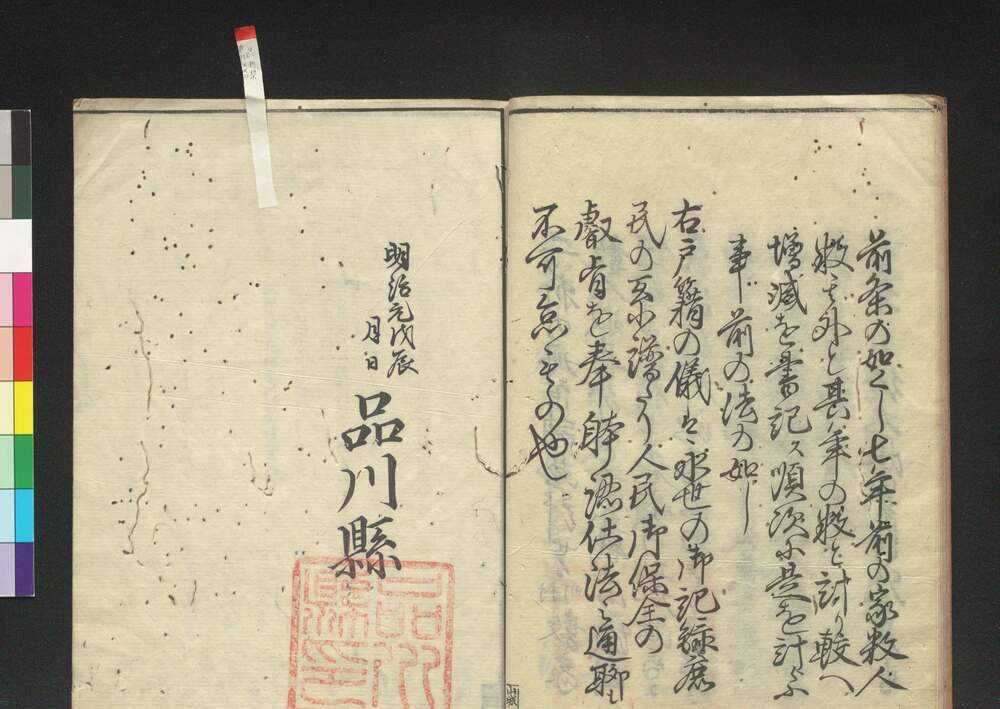 前条の如くし七年前の家数人
数を外と其年の数と計り較へ
増減を書記ス順次ニ是を計ふ
事前の法の如し
右戸籍の儀は永世の御記録庶
民の系譜たり人民御保全の
叡旨を奉
仕法通聊も
不可怠もの也
明治元戊辰
月日
品川縣